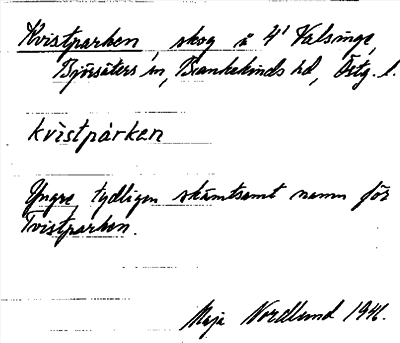 Kvistparken, skog å 4¹ Valsinge,
Björsäters sn, Bankekinds hd, Östg. l.
kvistpàrken
Yngre, tydligen skämtsamt namn för
Tvistparken.
Maja Nordlund 1946.